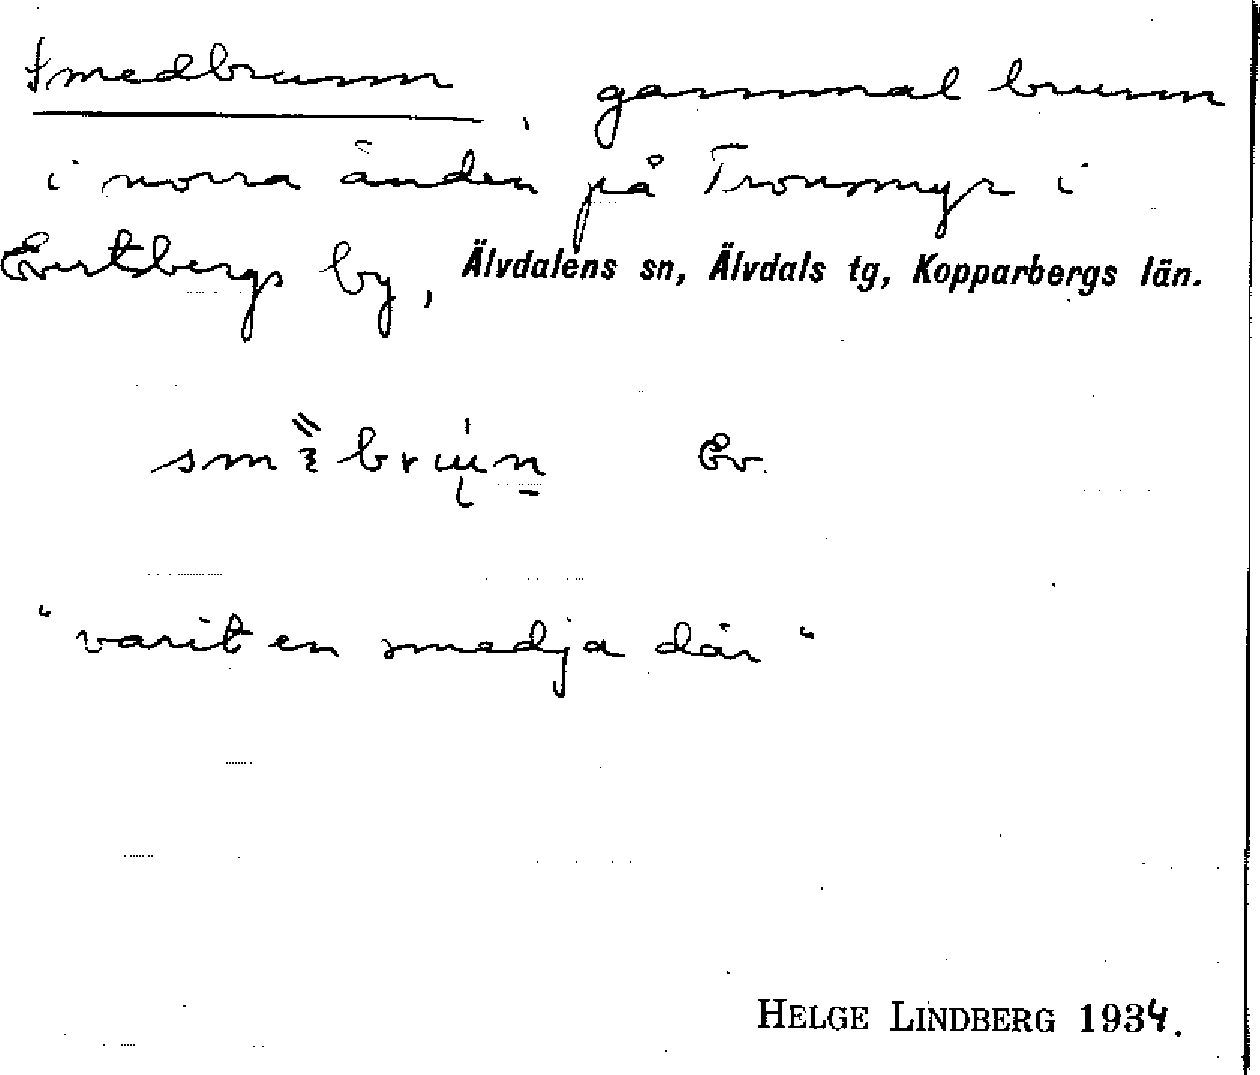 Smedbrunn, gammal brunn
i norra änden på Tronmyr i
Evertsbergs by, Älvdalens sn, Älvdals tg, Kopparbergs län.
Ev.
"varit en smedja där"
HELGE LINDBERG 1934.